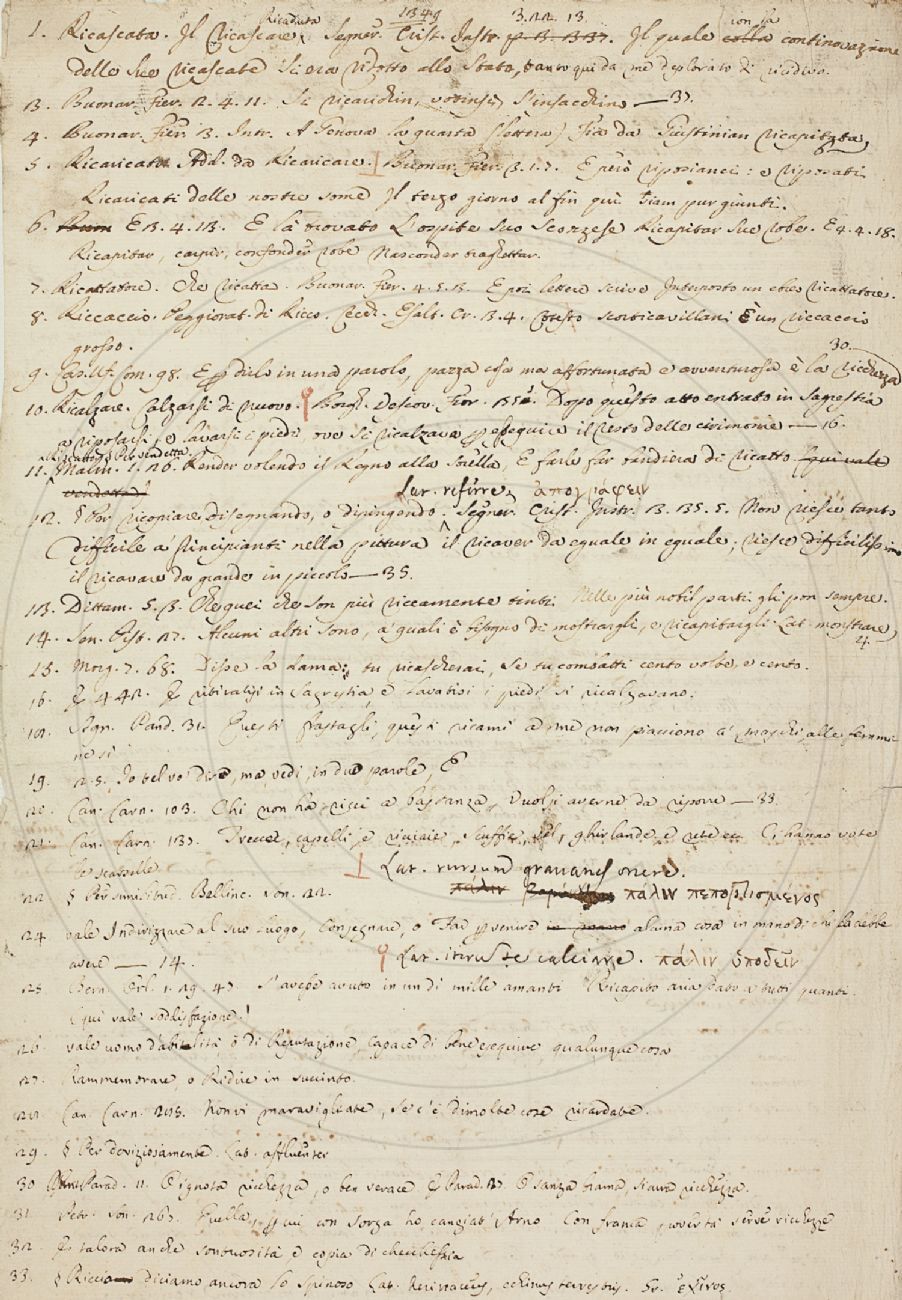 Ricaduta 1349 3.22.13. con la
1. Ricascata. Il Ricascare. Segner. Crist. Instr. Il quale colla continovazione
delle sue ricascate si era ridotto allo stato, tanto qui da me deplorato di recidivo.
13. Buonar. Fier. 2. 4. 11. Si ricarichin, votinsi, s'insacchino — 37.
4. Buonar. Fier. 3. Intr. A Genova la quarta (lettera) Fia da Giustinian ricapitata,
5. Ricaricato. Add. da Ricaricare. Buonar. Fier. 3. 1. 7. E però riposianci: e riposati
Ricaricati delle nostre some Il terzo giorno al fin qui siam pur giunti.
6. E 3. 4. 13. E là trovato L'ospite suo Scorzese Ricapitar sue robe. E 4. 4. 18.
Ricapitar, carpir, confonder robe Nasconder traghettar.
7. Ricattatore. Che ricatta. Buonar. Fier. 4. 5. 3. E poi lettere scrive Interposto un altro ricattatore.
8. Riccaccio. Peggiorat. di Ricco. Cecch. Esalt. Cr. 3. 4. Questo scorticavillani È un riccaccio
grosso.
30.
9. Com. 98. E dirlo in una parola, pazza cosa ma affortunata e avventurosa è la ricchezza
10. Ricalzare. Calzarsi di nuovo. Borgh. Vescov. Fior. Dopo questo atto entrato in Sagrestia
a riposarsi, e lavarsi i piedi, ove si ricalzava per eseguire il resto delle cirimonie — 16.
Riscatto. Per vendetta.
11. Malm. 1. 26. Render volendo il Regno alla sorella, E farle far bandiera di ricatto (qui vale
vendetta) Lat. referre, ἀπογράφειν
12. § Per ricopiare disegnando, o dipingendo. Segner. Crist. Instr. 3. 35. 5. Non riesce tanto
difficile a' Principianti nella pittura il ricavar da eguale in eguale; riesce difficilissimo
il ricavare da grande in piccolo — 35.
13. Dittam. 5. 3. Che quei che son più riccamente tinti Nelle più nobil parti gli pon sempre.
14. Sen. Pist. 27. Alcuni altri sono, a' quali è bisogno di mostrargli, e ricapitargli. Lat. monstrare,
24
15. Morg. 7. 68. Disse la dama: tu ricascherai, Se tu combatti cento volte, e cento.
16. E 442. E ritiratisi in Sagrestia, e lavatisi i piedi si ricalzavano.
Agn. Pand. 31. Questi frastagli, questi ricami a me non piacciono a' maschi, alle femmi
ne si
19. 25. Io bel vo' dire, ma vedi, in due parole,
20. Can. Carn. 103. Chi non ha ricci a bastanza, Vuolsi averne da riporre — 33
21. Can. Carn. 137. Trecce, capelli, e ricciaie, Scuffie, vel, ghirlande e rete ec. Ci hanno vote
le scatole. Lat. rursum gravans onere.
πάλιν πάλιν πεπορτισμένος
22. § Per similitud. Bellinc. son. 22.
24. vale Indirizzare al suo luogo, Consegnare, o Far pervenire in mano alcuna cosa in mano di chi la debbe
avere — 14. Lat. iterum se calceare. πάλιν ὑποδεῖν
25. Bern. Orl. 1. 29. 47. S'avesse avuto in un dì mille amanti Ricapito aria dato a tutti quanti.
(qui vale soddisfazione.)
26. vale uomo d'abilità o di Reputazione, Capace di bene eseguire qualunque cosa
27. Rammemorare, o Ridire in succinto.
Can. Carn. Non vi maravigliate, Se c'è dimolte cose ricardate.
29. § Per doviziosamente. Lat. affluenter
30 Parad. 11. O ignota ricchezza, o ben verace E Parad. 27. O sanza brama, sicura ricchezza.
31. Petr. son. Quella, per cui con Sorga ho cangiat' Arno Con franca povertà serve ricchezze
32. E talora anche sontuosità e copia di checchessia
33. § Riccio diciamo ancora lo Spinoso Lat. herinaceus, echinus terrestris. Gr. ἐχῖνος